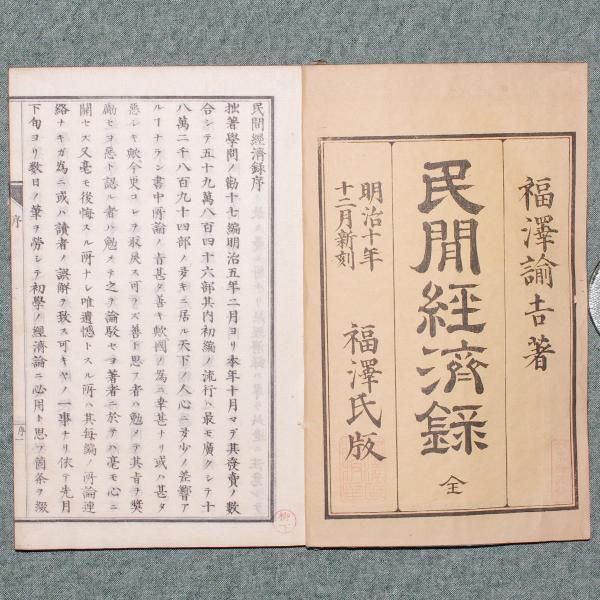 福澤諭吉著
民間經濟錄
全
明治十年
十二月新刻
福澤氏版
民間經濟錄序
拙著學問ノ勸十七編明治五年二月ヨリ本年十月マデ其發賣ノ數
合シテ五十九萬八百四十六部其内初編ノ流行ハ最モ廣クシテ十
八萬二千八百九十四部ノ多キニ居ル天下ノ人心ニ多少ノ差響ア
ルヿナラン書中所論ノ旨甚タ善キ歟國ノ爲ニ幸甚ナリ或ハ甚タ
惡シキ歟今更コレヲ取戾ス可ラズ善ト思フ者ハ勉メテ其旨ヲ奬
勵セヨ惡ト認ル者ハ勉メテ之ヲ論駁セヨ著者ニ於テハ毫モ心ニ
關セス又毫モ後悔スル所ナシ唯遺憾トスル所ハ其每編ノ所論連
絡ナキガ爲ニ或ハ讀者ノ誤解ヲ致ス可キヤノ一事ナリ依テ先月
下旬ヨリ數日ノ筆ヲ勞シテ初學ノ經濟論ニ必用ト思フ箇条ヲ綴
序
序一
柳下